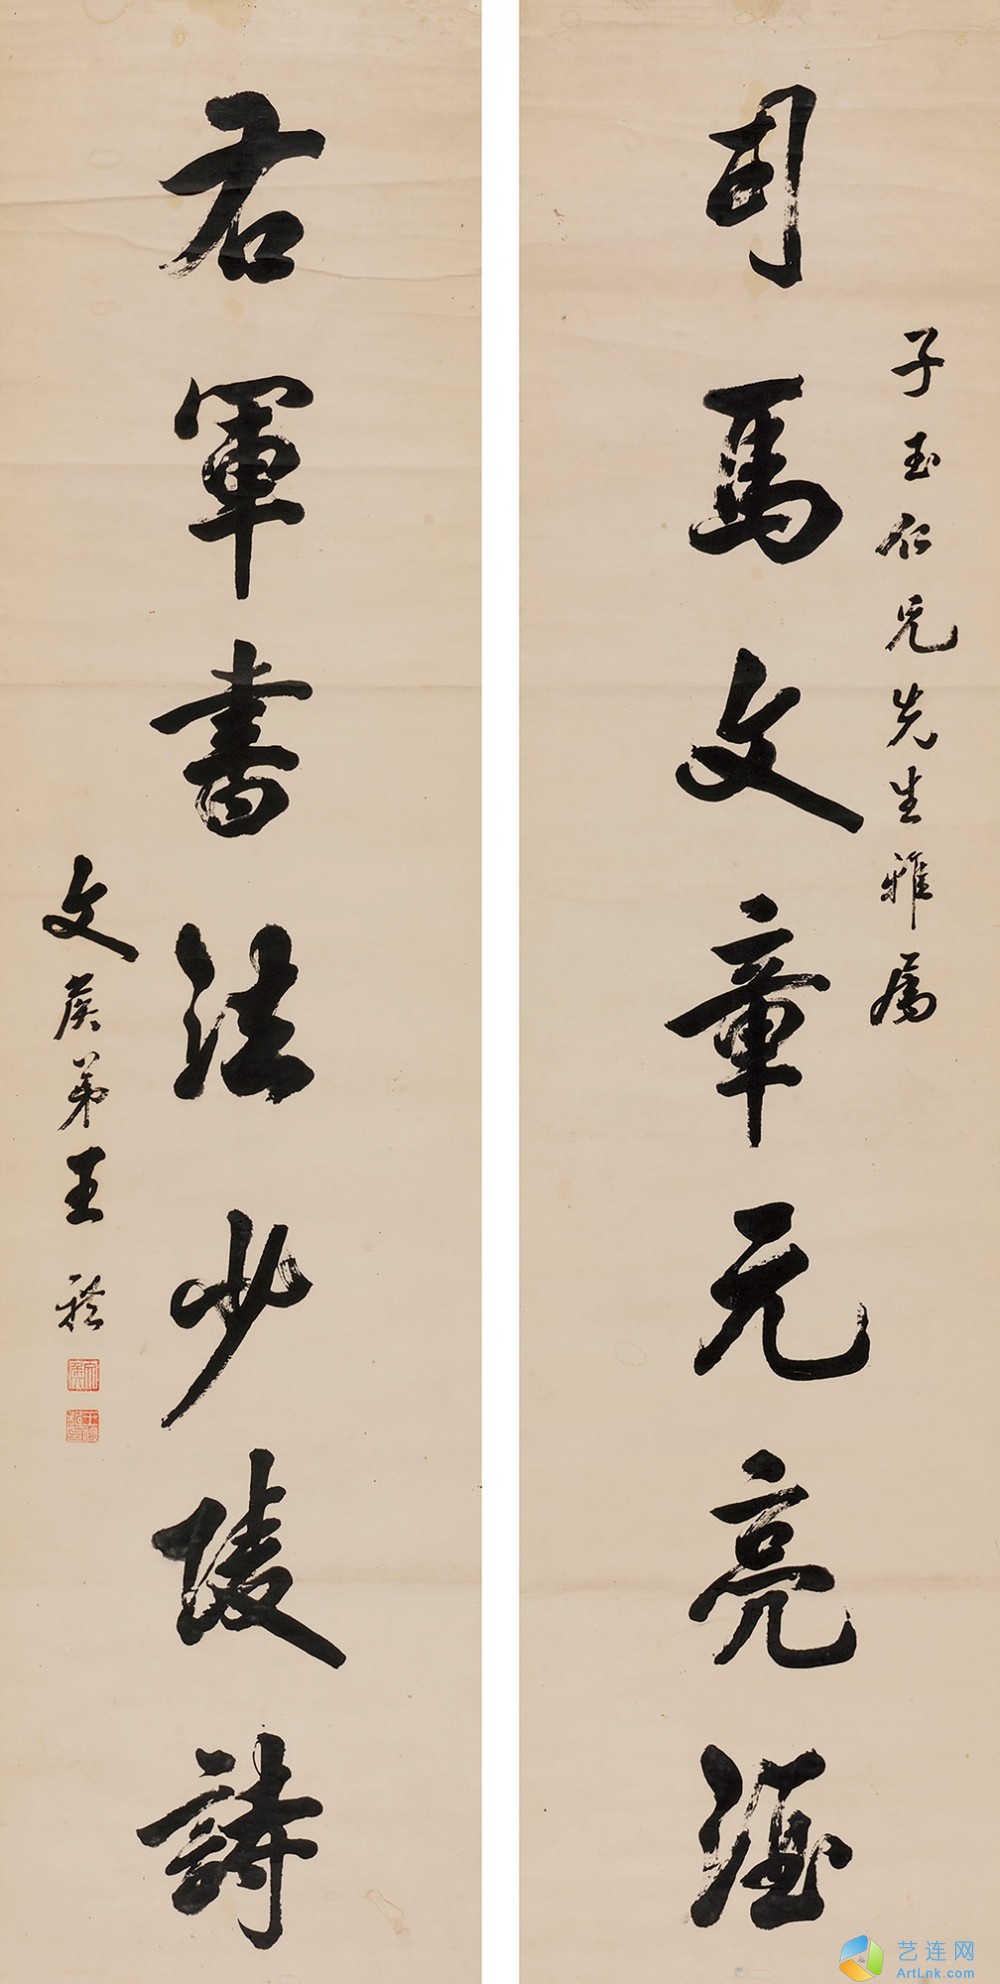 子玉仁兄先生雅属
司馬文章元亮酒
右軍書法少陵詩
文矦弟王
艺连网
ArtLnk.com